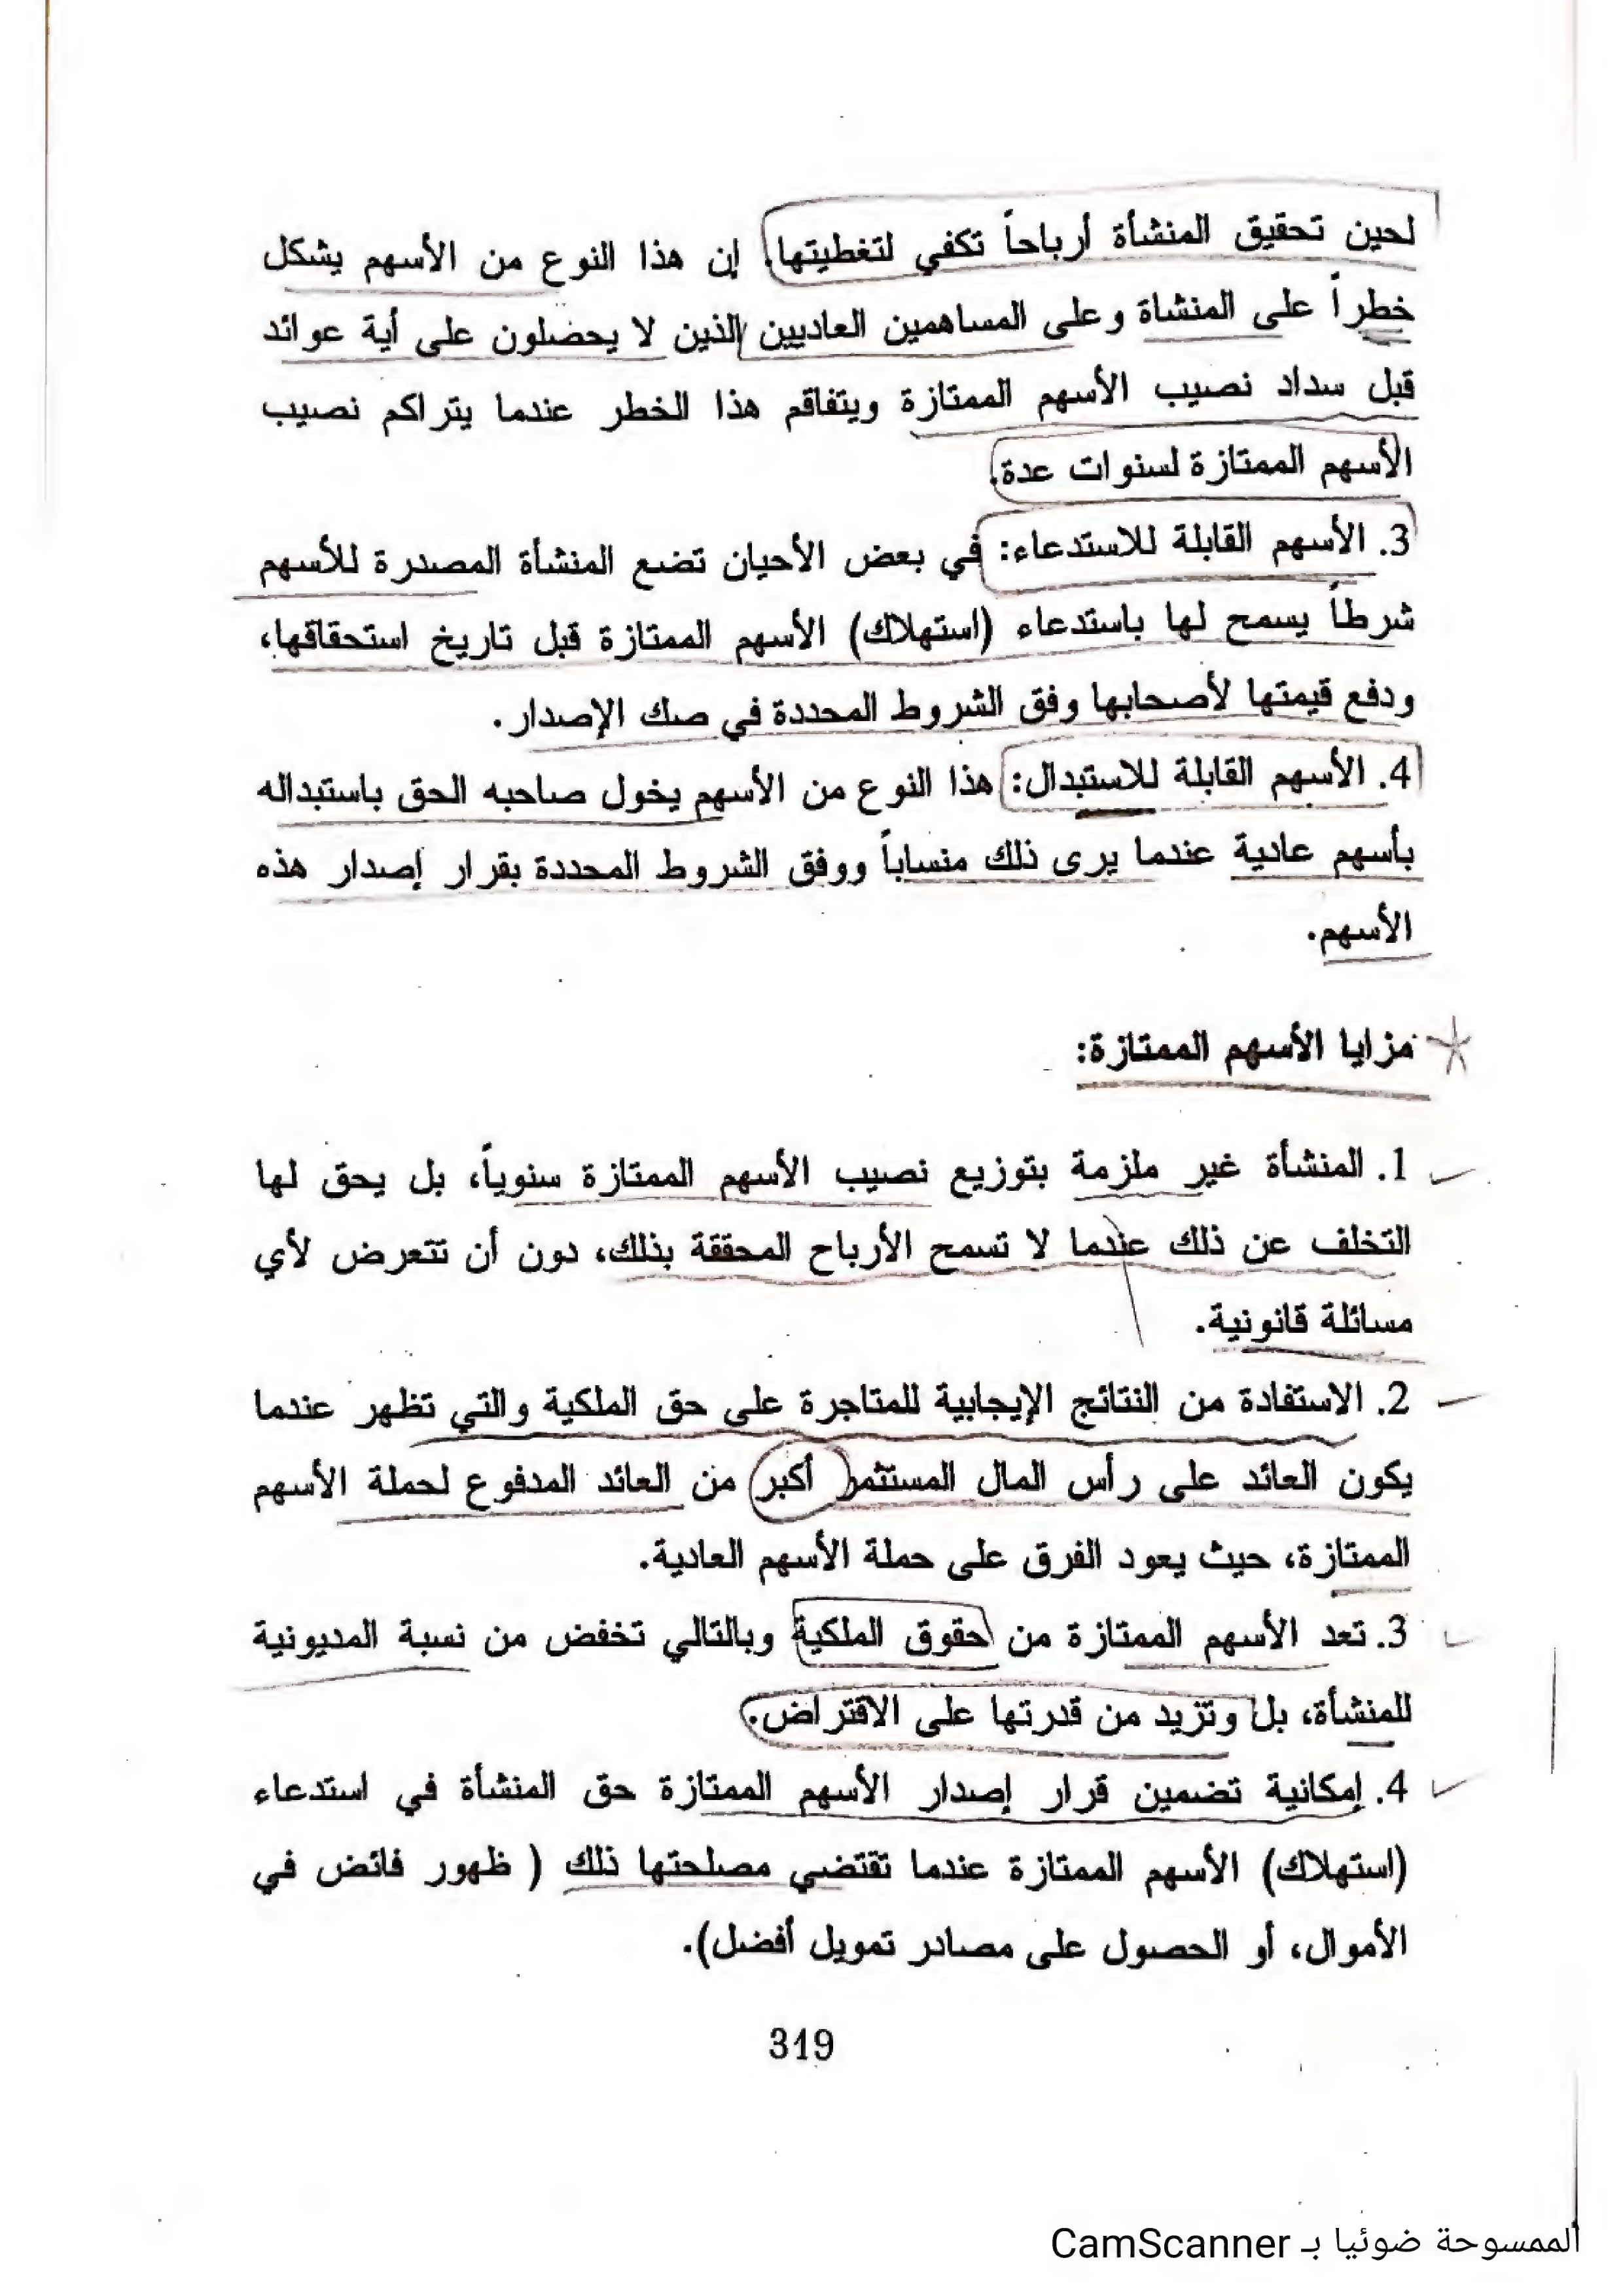 لحين تحقيق المنشأة أرباحاً تكفي لتغطيتها. إن هذا النوع من الأسهم يشكل
خطراً على المنشاة وعلى المساهمين العاديين الذين لا يحصلون على أية عوائد
قبل سداد نصيب الأسهم الممتازة ويتفاقم هذا الخطر عندما يتراكم نصيب
الأسهم الممتازة لسنوات عدة.
3. الأسهم القابلة للاستدعاء: في بعض الأحيان تضع المنشأة المصدرة للأسهم
شرطاً يسمح لها باستدعاء (استهلاك) الأسهم الممتازة قبل تاريخ استحقاقها،
ودفع قيمتها لأصحابها وفق الشروط المحددة في صك الإصدار.
4. الأسهم القابلة للاستبدال: هذا النوع من الأسهم يخول صاحبه الحق باستبداله
بأسهم عادية عندما يرى ذلك منساباً ووفق الشروط المحددة بقرار إصدار هذه
الأسهم.
مزايا الأسهم الممتازة:
1. المنشأة غير ملزمة بتوزيع نصيب الأسهم الممتازة سنوياً، بل يحق لها
التخلف عن ذلك عندما لا تسمح الأرباح المحققة بذلك، دون أن تتعرض لأي
مسائلة قانونية.
2. الاستفادة من النتائج الإيجابية للمتاجرة على حق الملكية والتي تظهر عندما
يكون العائد على رأس المال المستثمر أكبر من العائد المدفوع لحملة الأسهم
الممتازة، حيث يعود الفرق على حملة الأسهم العادية.
3. تعد الأسهم الممتازة من حقوق الملكية وبالتالي تخفض من نسبة المديونية
للمنشأة، بل وتزيد من قدرتها على الاقتراض.
4. إمكانية تضمين قرار إصدار الأسهم الممتازة حق المنشأة في استدعاء
(استهلاك) الأسهم الممتازة عندما تقتضي مصلحتها ذلك ( ظهور فائض في
الأموال، أو الحصول على مصادر تمويل أفضل).
319
الممسوحة ضوئيا بـ CamScanner